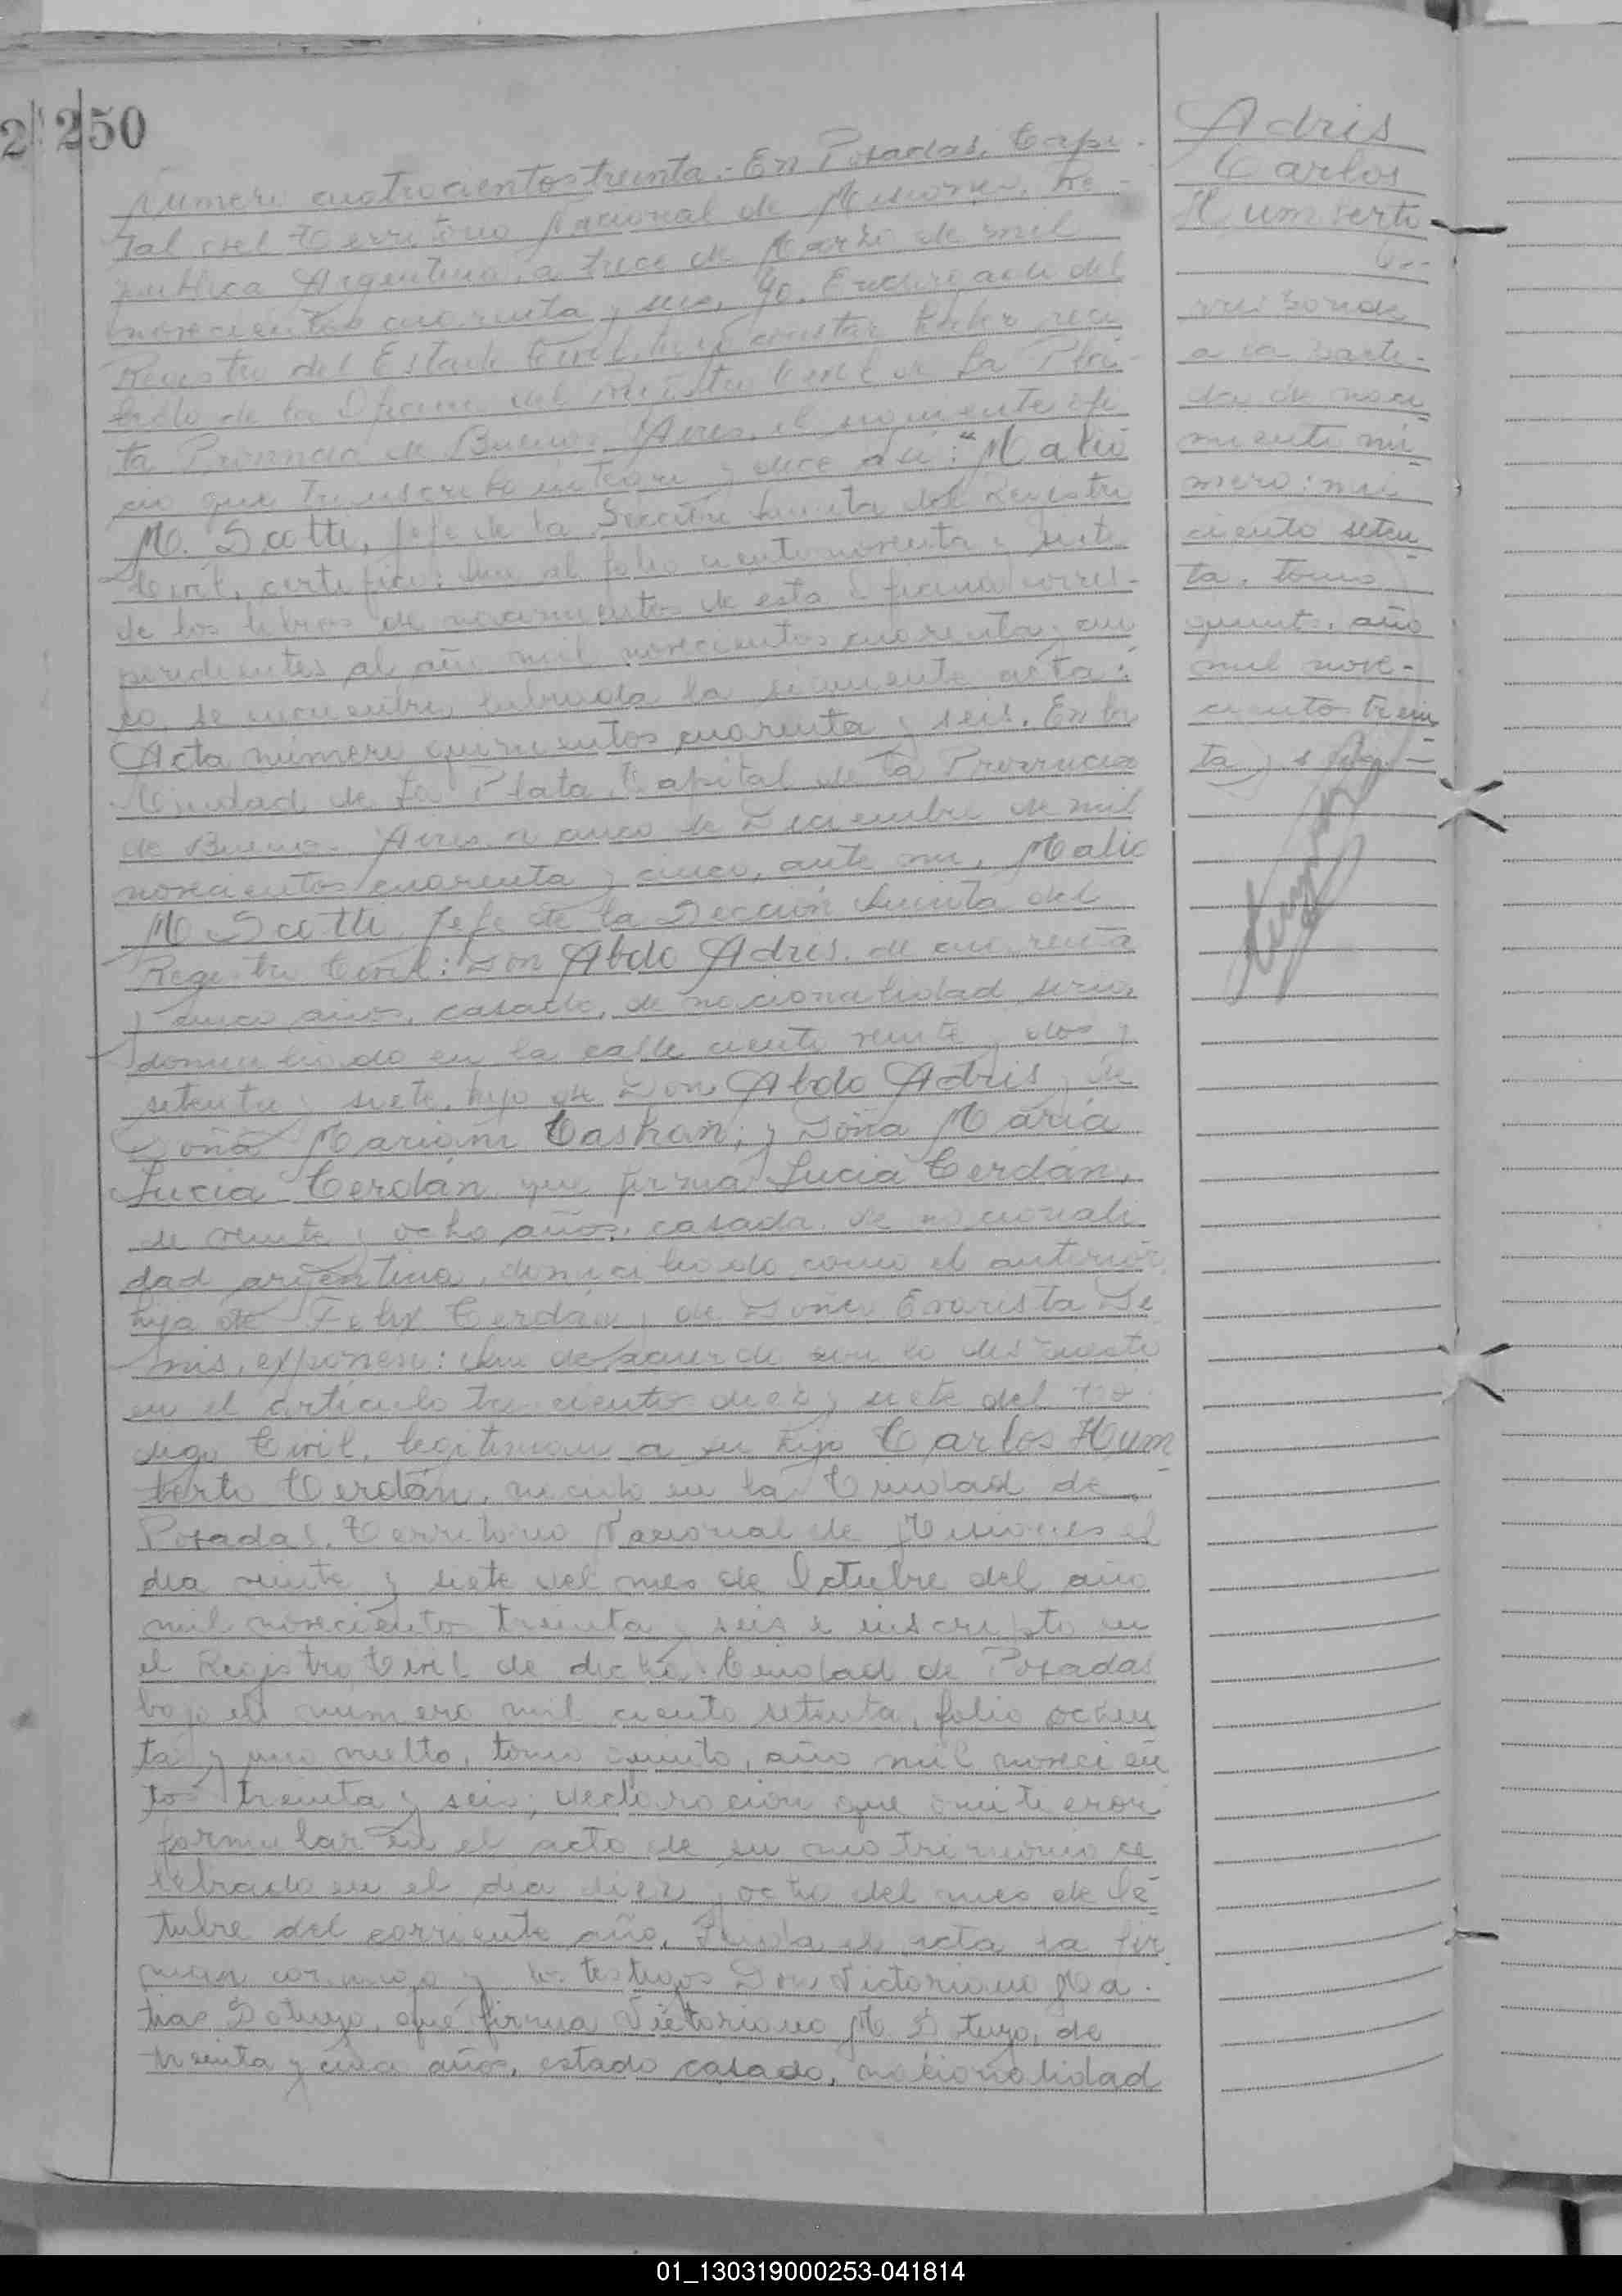 250
Número cuatrocientos treinta.- En Posadas, Capi-
tal del Territorio Nacional de Misiones, Re-
pública Argentina, a trece de Marzo de mil
novecientos cuarenta y seis, Yo, Encargado del
Registro del Estado Civil, hago constar haber reci
bido de la Oficina del Registro Civil de La Pla-
ta Provincia de Buenos Aires, el siguiente ofi
cio que transcribo íntegro y dice así: "Malio
M. Scotti, Jefe de la Sección Quinta del Registro
Civil, certifico: Que al folio ciento noventa y siete
de los libros de nacimientos de esta Oficina corres-
pondientes al año mil novecientos cuarenta y cin
co, se encuentra labrada la siguiente acta:
Acta número quinientos cuarenta y seis. En la
Ciudad de La Plata, Capital de la Provincia
de Buenos Aires, a cinco de Diciembre de mil
novecientos cuarenta y cinco, ante mi, Malio
M. Scotti, Jefe de la Sección Quinta del
Registro Civil: Don Abdo Adris, de cuarenta
y cinco años, casado, de nacionalidad sirio,
domiciliado en la calle ciento veinte y dos y
setenta y siete, hijo de Don Abdo Adris y de
Doña Mariam Cashan; y Doña María
Lucía Cerdán que firma Lucía Cerdán,
de veinte y ocho años, casada, de nacionali
dad argentina, domiciliada como el anterior,
hija de Felix Cerdán y de Doña Evarista De
nis, exponen: Que de acuerdo con lo dispuesto
en el artículo trescientos diez y siete del Có-
digo Civil, legitiman a su hijo Carlos Hum
berto Cerdán, nacido en la Ciudad de
Posadas, Territorio Nacional de Misiones el
día veinte y siete del mes de Octubre del año
mil novecientos treinta y seis e inscripto en
el Registro Civil de dicha Ciudad de Posadas
bajo el número mil ciento setenta, folio ochen
ta y uno vuelto, tomo quinto, año mil novecien
tos treinta y seis; declaración que omitieron
formular en el acto de su matrimonio ce
lebrado en el día diez y ocho del mes de Oc-
tubre del corriente año. Leída el acta la fir
man conmigo y los testigos Don Victoriano Ma-
tias Sotuyo, que firma Victoriano M. Sotuyo, de
treinta y años, estado casado, nacionalidad
Adris
Carlos
Humberto
Co-
rresponde
a la parti-
da de naci
miento nú-
mero: mil
ciento seten
ta, tomo
quinto, año
mil nove-
cientos trein
ta y seis
01_130319000253-041814